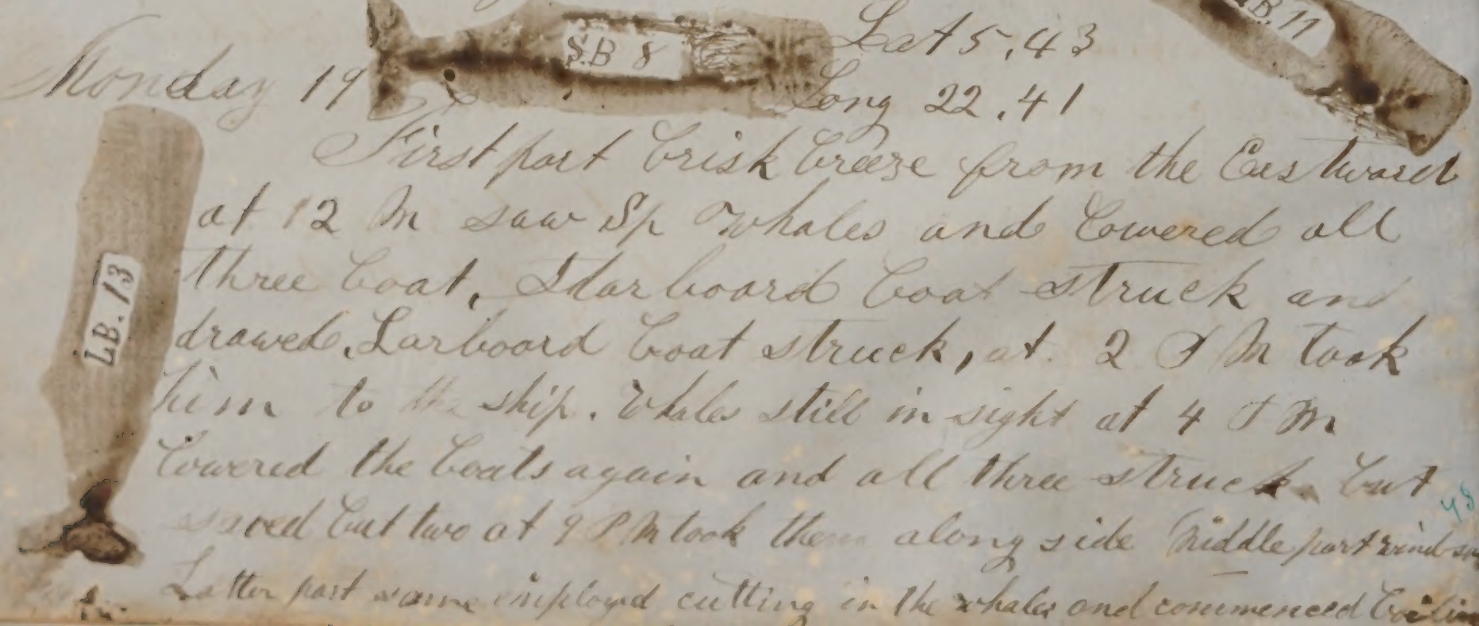 S.B 8
Lat 5,43
B. 11
Monday 19
Long 22,41
First part brisk breeze from the Eastward
at 12 M saw Sp Whales and lowered all
LB. 13
three boat, Starboard boat struck and
drawed, Larboard boat struck, at 2 P M took
him to the ship. Whales still in sight at 4 P M
lowered the boats again and all three struck but
saved but two at 9 P M took them along side Middle part wind
Latter part same employd cutting in the whales and commenced